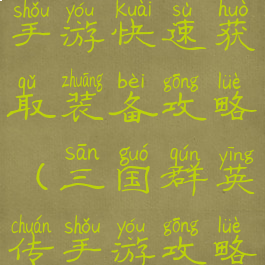 shǒu yóu kuài sù huò
手游快速获
qǔ zhuāng bèi gōng lüè
取装备攻略
sān guó qún yīng
（三国群英
chuán shǒu yóu gōng lüè
传手游攻略